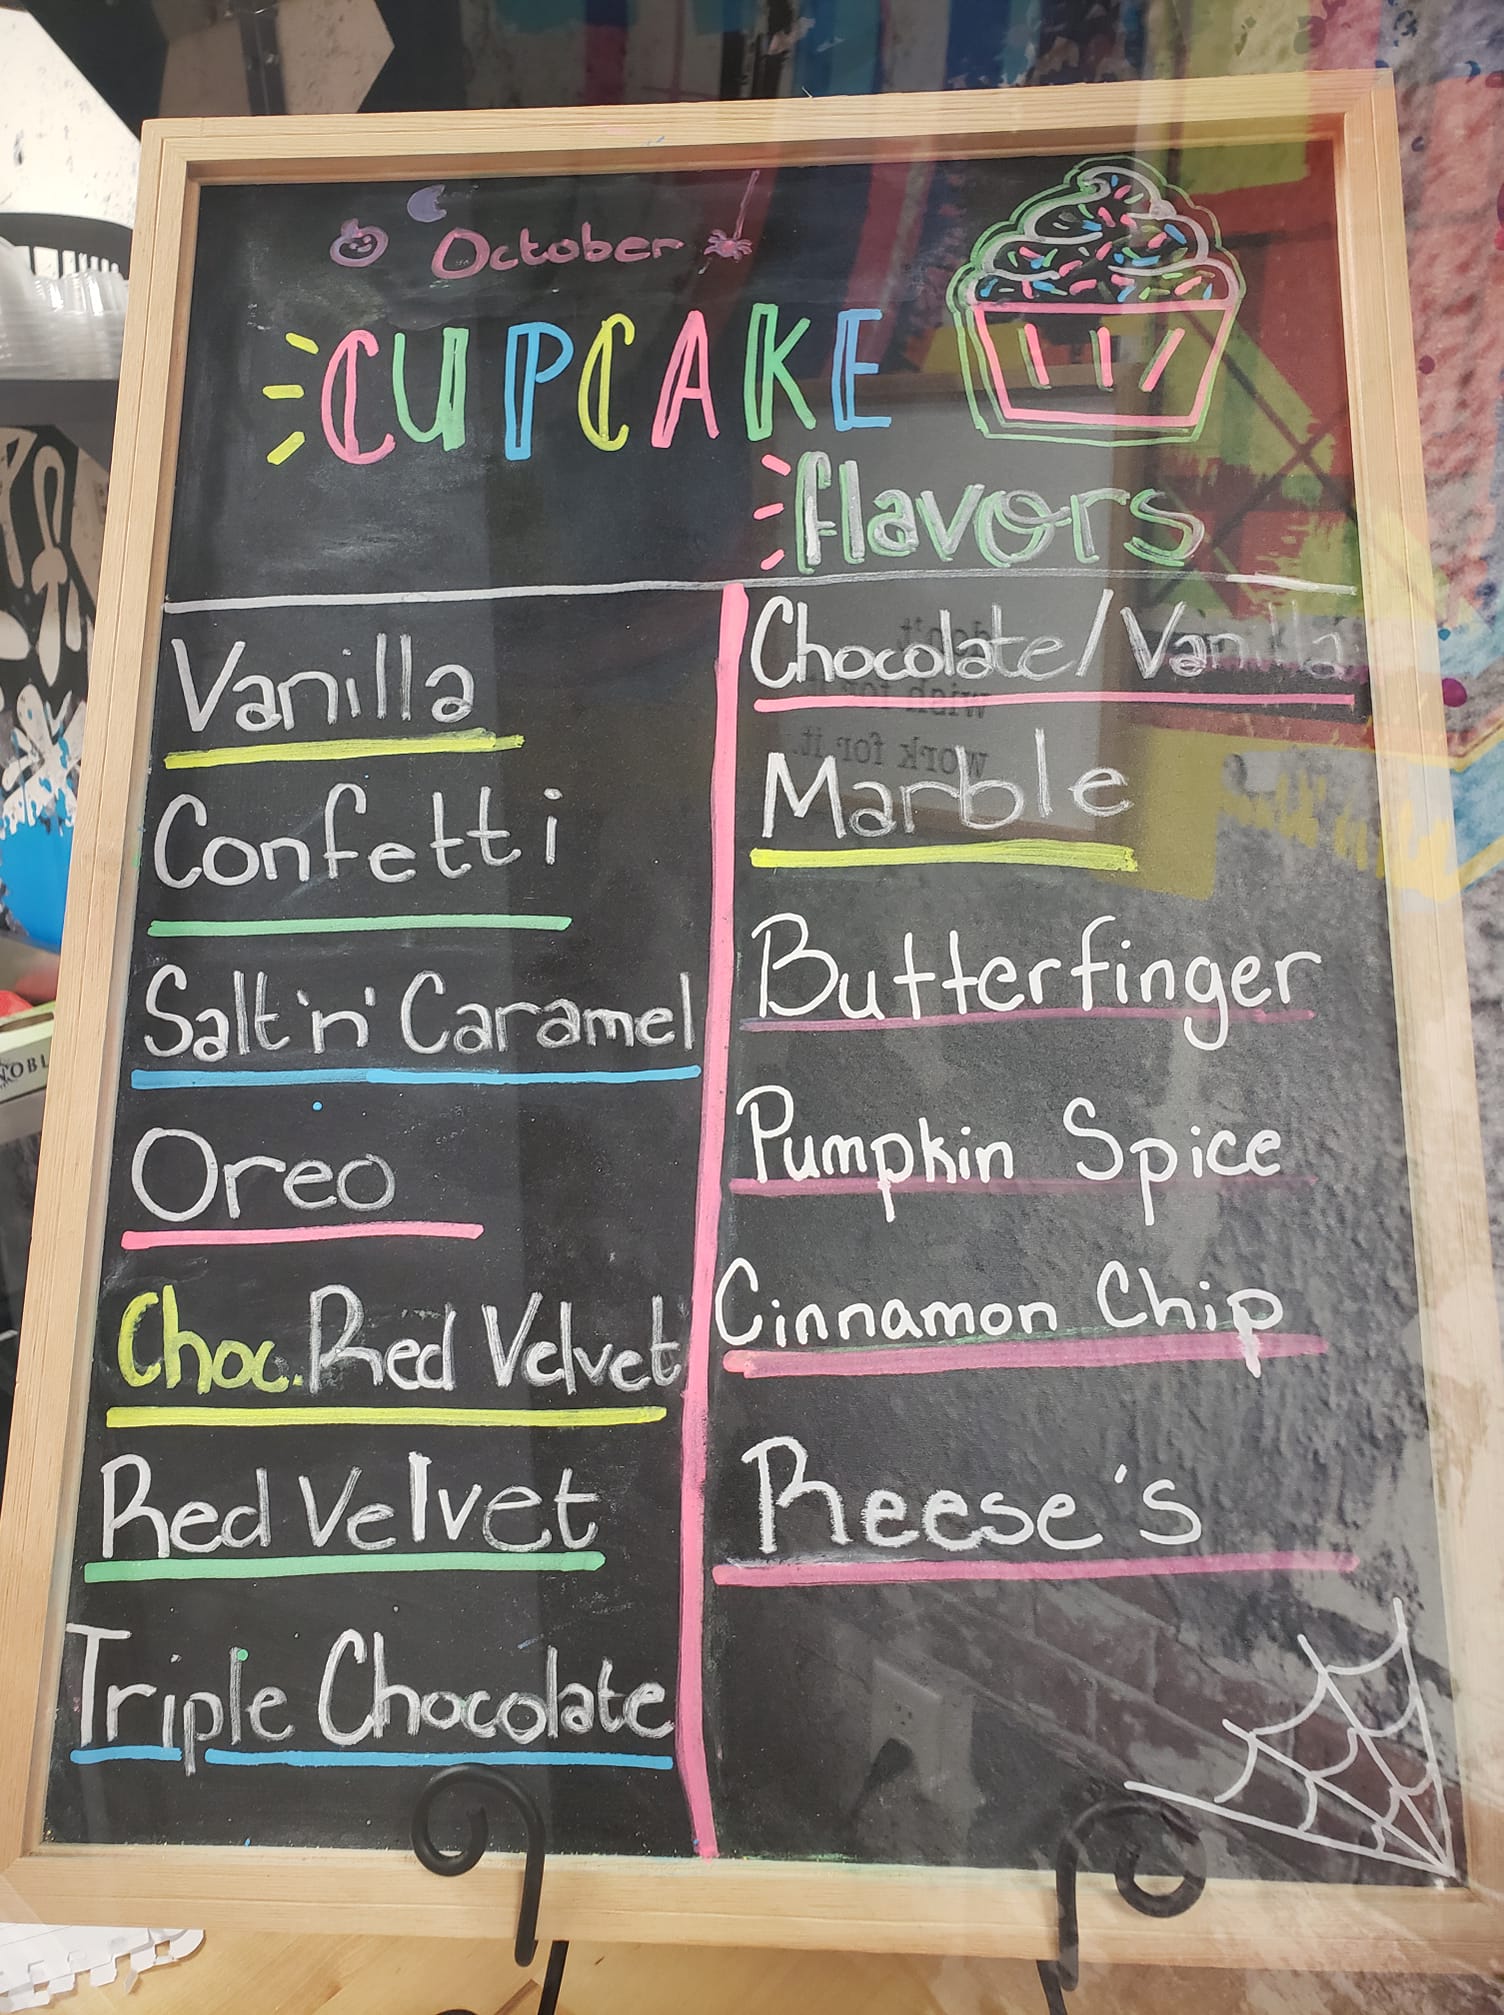 October
CUPCAKE
flavors
Vanilla
Confetti
Salt 'n' Caramel
Oreo
Choc. Red Velvet
Red Velvet
Triple Chocolate
Chocolate/Vanilla
Marble
Butterfinger
Pumpkin Spice
Cinnamon Chip
Reese's
don't
wish for it.
work for it.